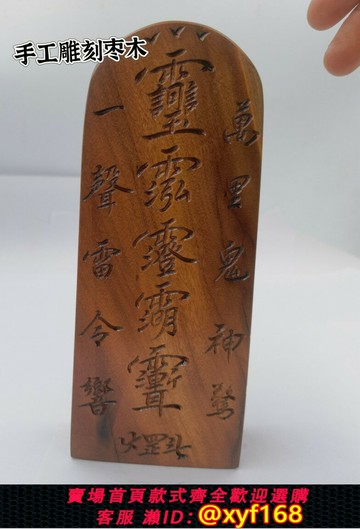 手工雕刻枣木
萬里鬼神驚
一聲雷令響
賣場首頁款式齊全歡迎選購
客服 瀨ID:→@xyf168